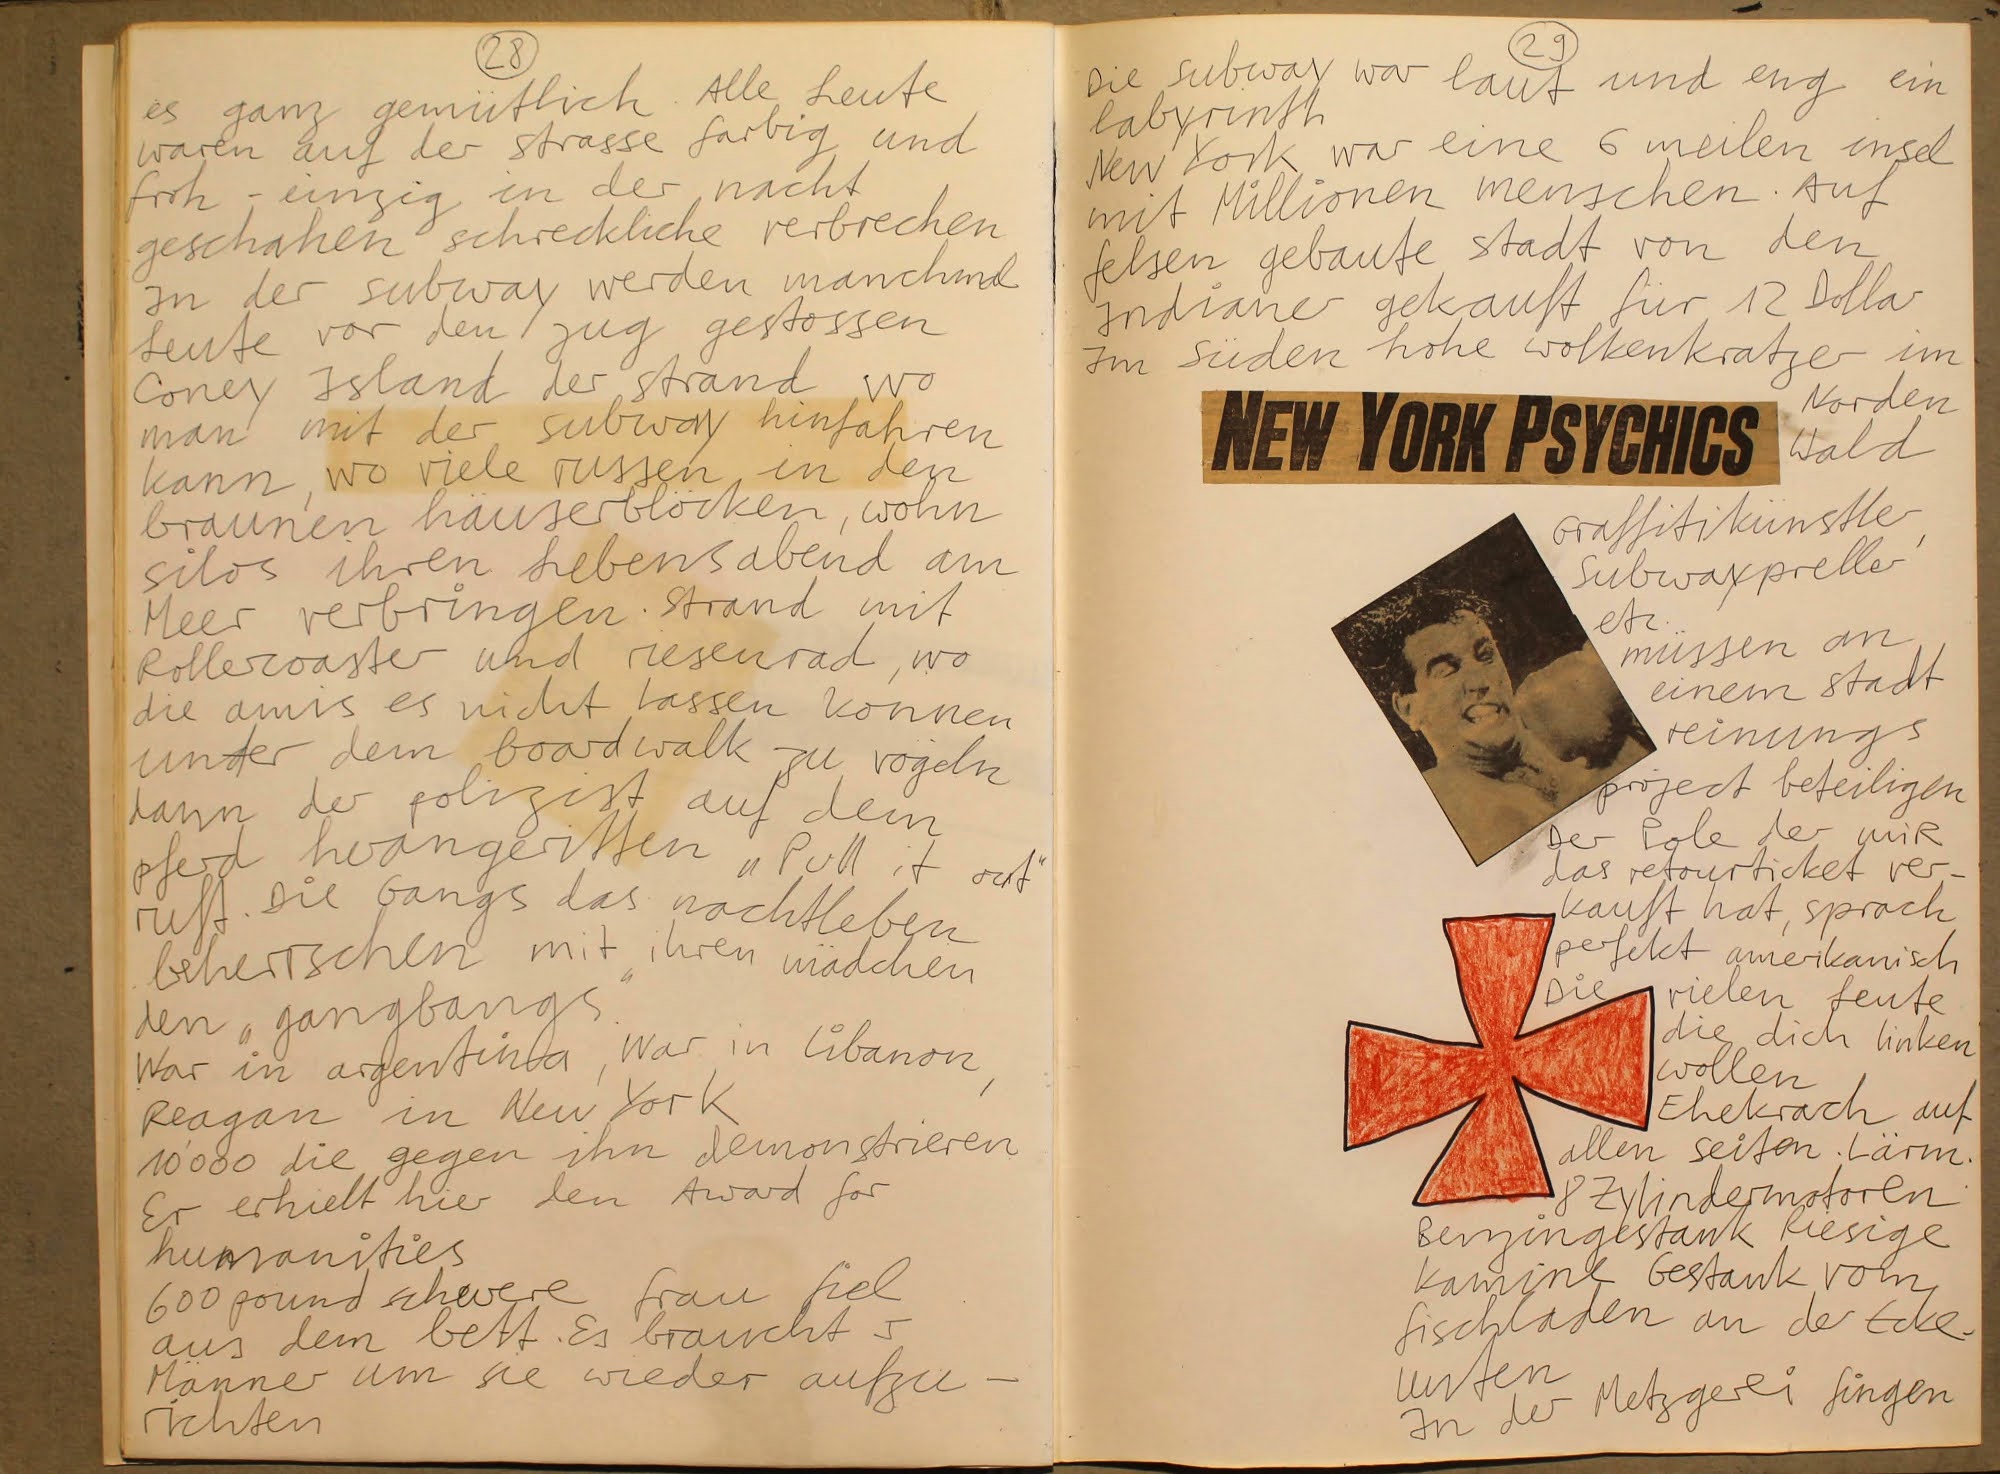 28
es ganz gemütlich. Alle Leute
waren auf der strasse farbig und
froh - einzig in der nacht
geschahen schreckliche verbrechen
In der subway werden manchmal
Leute vor den zug gestossen
Coney Island der strand wo
man mit der subway hinfahren
kann, wo viele russen in den
braunen häuserblöcken, wohn
silos ihren Lebensabend am
Meer verbringen. Strand mit
Rollercoaster und riesenrad, wo
die amis es nicht lassen können
under dem boardwalk zu vögeln
dann der polizist auf dem
pferd herangeritten „Pull it out“
ruft. Die Gangs das nachtleben
beherrschen mit ihren mädchen
den „gangbangs“
War in argentinia, War in Libanon,
Reagan in New York
10'000 die gegen ihn demonstrieren
Er erhielt hier den Award for
humanities
600 pound schwere frau fiel
aus dem bett. Es braucht 5
Männer um sie wieder aufzu-
richten
29
Die subway war laut und eng ein
labyrinth
New York war eine 6 meilen insel
mit Millionen menschen. Auf
felsen gebaute stadt von den
Indianer gekauft für 12 Dollar
Im Süden hohe wolkenkratzer im
Norden
Wald
NEW YORK PSYCHICS
Graffitikünstler,
Subwaypreller
etc.
müssen an
einem stadt
reinungs
project beteiligen
Der Pole der mir
das retourticket ver-
kauft hat, sprach
perfekt amerikanisch
Die vielen Leute
die dich linken
wollen
Ehekrach auf
allen seiten. Lärm.
8 Zylindermotoren
Benzingestank Riesige
Kamine Gestank vom
fischladen an der Ecke.
Unten
In der Metzgerei fingen